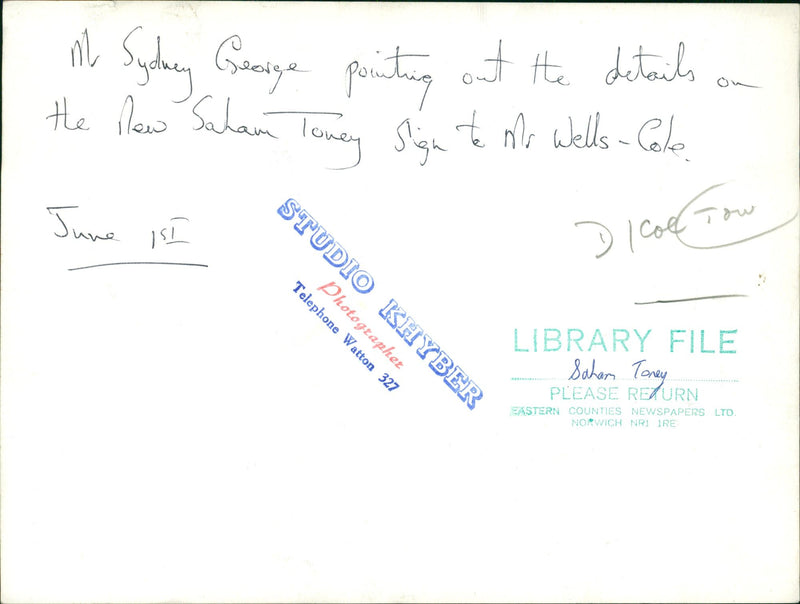 Mr Sydney George pointing out the details on
the New Saham Toney Sign to Mr Wells-Cole.
June 1ST
STUDIO KHYBER
Photographer
Telephone Watton 327
LIBRARY FILE
Saham Toney
PLEASE RETURN
EASTERN COUNTIES NEWSPAPERS LTD.
NORWICH NR1 1RE